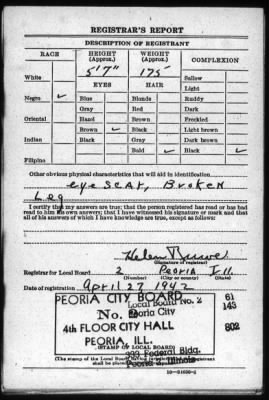 REGISTRAR'S REPORT
DESCRIPTION OF REGISTRANT
RACE HEIGHT (Approx.) WEIGHT (Approx.) COMPLEXION
5'7" 175
White Sallow
EYES HAIR Light
Negro ✓ Blue Blonde Ruddy
Gray Red Dark
Oriental Hazel Brown Freckled
Brown ✓ Black Light brown
Indian Black Gray Dark brown
Bald ✓ Black ✓
Filipino
Other obvious physical characteristics that will aid in identification
eye scar, Broken
Leg
I certify that my answers are true; that the person registered has read or has had
read to him his own answers; that I have witnessed his signature or mark and that
all of his answers of which I have knowledge are true, except as follows:
Helen
(Signature of registrar)
Registrar for Local Board 2 Peoria Ill.
(Number) (City or county) (State)
Date of registration April 27 1942
PEORIA CITY BOARD 61
Local Board No. 2 143
No. Peoria City
4th FLOOR CITY HALL 802
PEORIA, ILL.
(STAMP OF LOCAL BOARD)
Federal Bldg.
Peoria, Illinois
(The stamp of the Local Board
shall be